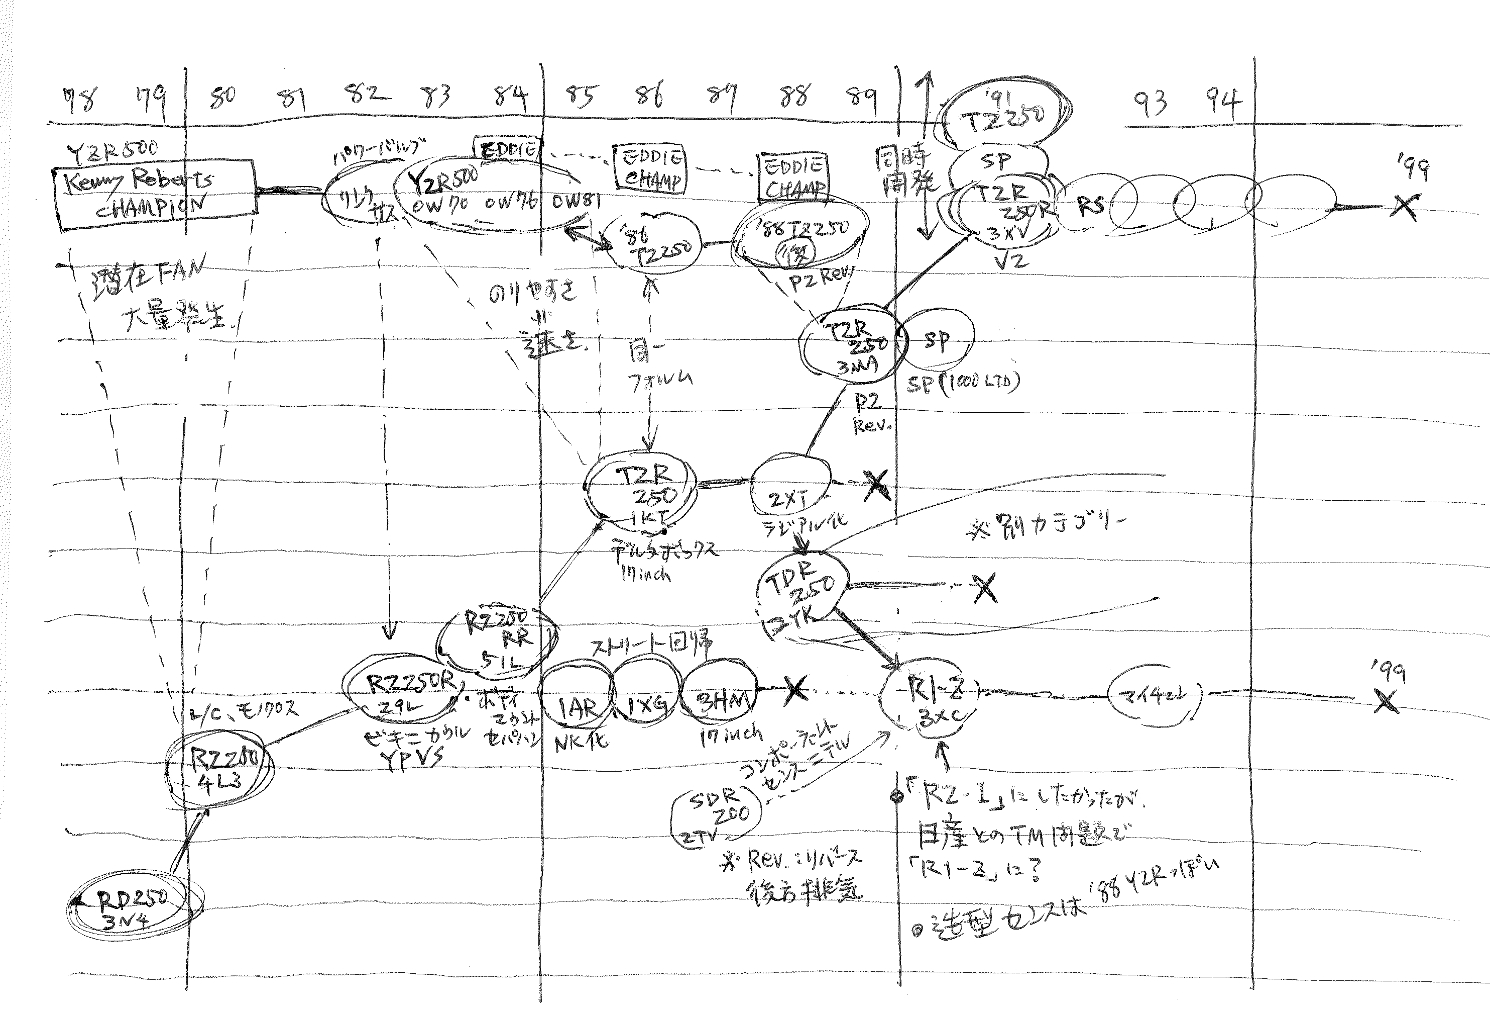 78 79 80 81 82 83 84 85 86 87 88 89 93 94
'91
TZ250
YZR500
Kenny Roberts
CHAMPION
パワーバルブ
EDDIE
EDDIE
CHAMP
EDDIE
CHAMP
同時
開発
SP
'99
YZR500
OW70 OW76 OW81
TZR
250R
3XV
RS
V2
'86
TZ250
'88TZ250
後
P2 Rev.
潜在FAN
大量発生.
のりやすさ
=
速さ.
同一
フォルム
TZR
250
3MA
SP
SP(1000LTD)
P2
Rev.
TZR
250
1KT
デルタボックス
17inch
2XT
ラジアル化
※別カテゴリー
TDR
250
2YK
RZ250
RR
51L
ストリート回帰
RZ250R
29L
・ボディ
マウント
ビキニカウル
YPVS
1AR
NK化
1XG
3HM
17inch
R1-Z
3XC
マイチェン
'99
L/C、モノクロス
RZ250
4L3
コンポーネント
SDR
200
2TV
※Rev.:リバース
後方排気
●「RZ-1」にしたかったが、
日産とのTM問題で
「R1-Z」に?
●造型センスは'88YZRっぽい
RD250
3N4